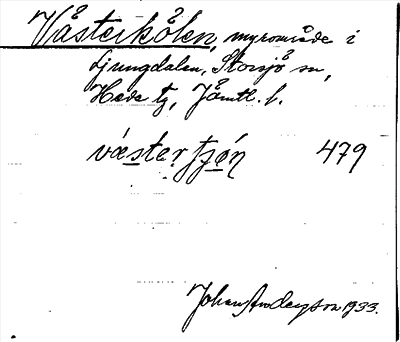 Västerkölen, myrområde i
Ljungdalen, Storsjö sn,
Hede tg, Jämtl. l.
västertjǿn 479
Johan Anderzon 1933.